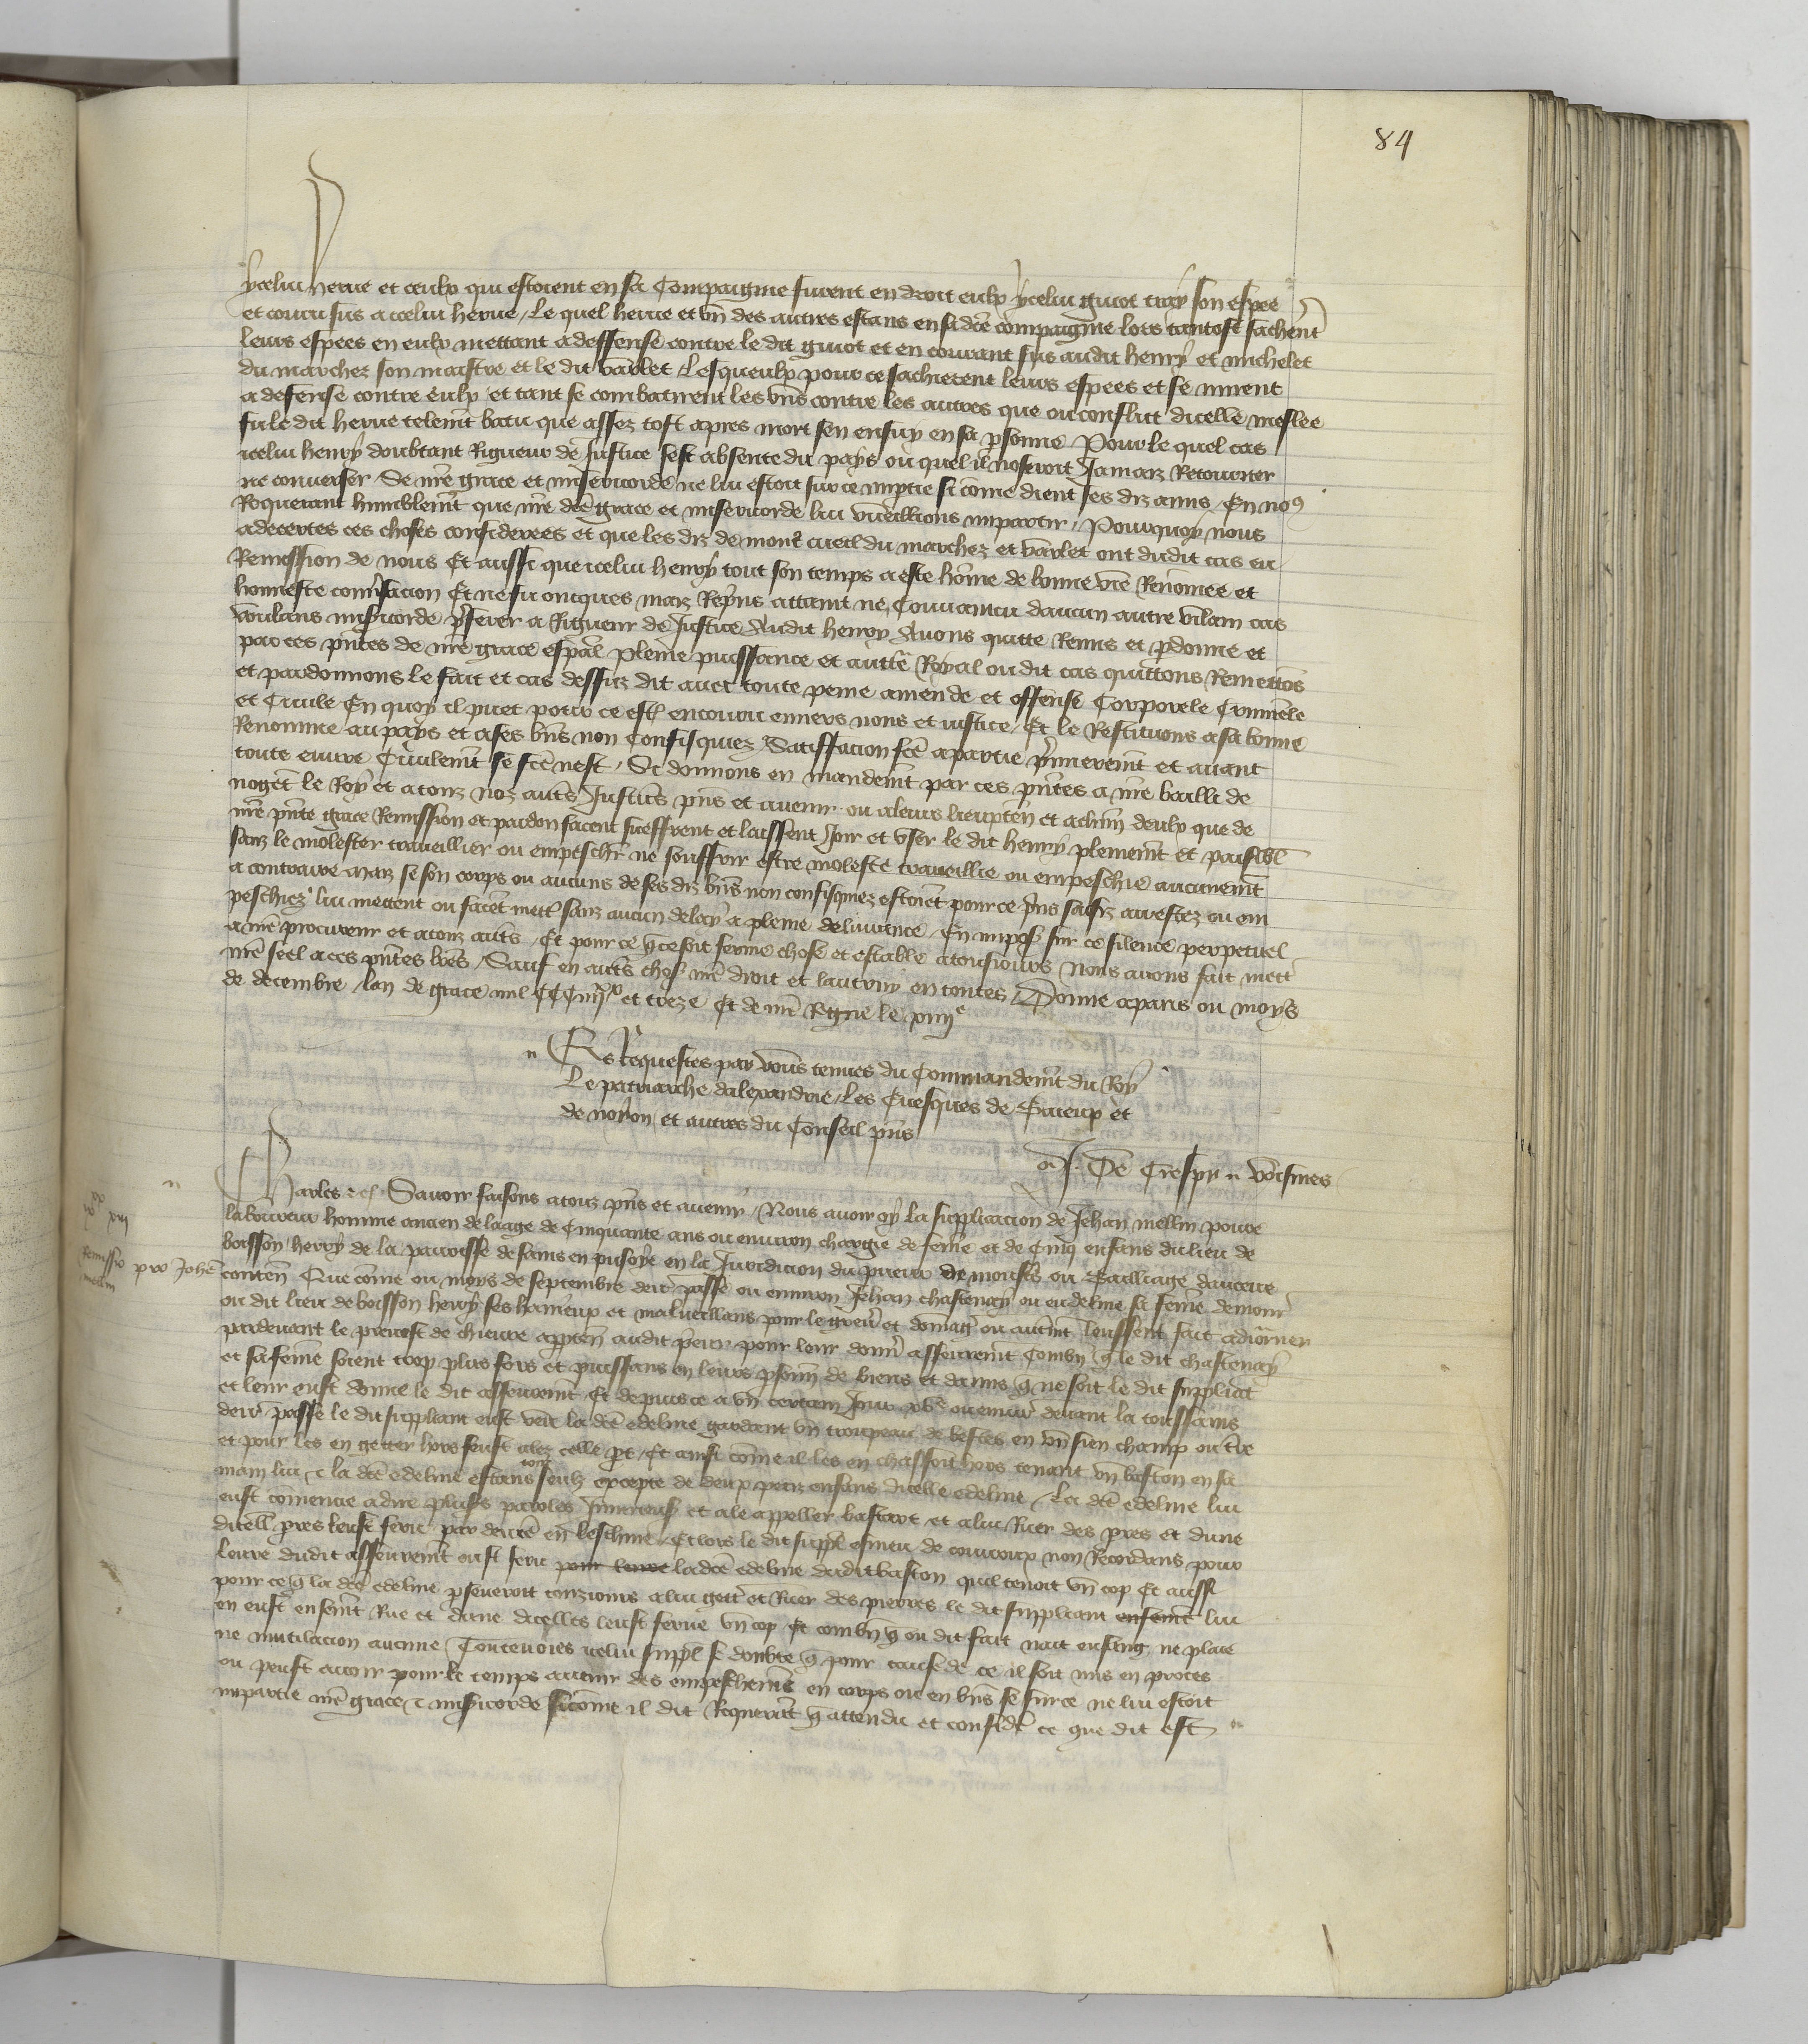 84
ycelui herue et ceulx qui estoient en sa compaignie furent en droit eulx ycelui guiot tray son espee
et couru sus a icelui herue / Le quel herue et vn des autres estans en sa dce compaignie lors tantost sacheret
leurs espees en eulx mettant a deffense contre le dit guiot et en courant sus audit henry et michelet
du marchez son maistre et le dit varlet / Lesqueulx pour ce sachierent leurs espees et se mirent
a defense contre eulx et tant se combatirent les vns contre les autres que ou conflict dicelle meslee
fu le dit herue telemt batu que assez tost apres mort sen ensuy en sa psonne Pour le quel cas
icelui henry doubtant Rigueur de Justice sest absente du pays ou quel il noseroit Jamaiz Retourner
ne conuerser Se nre grace et misericorde ne lui estoit sur ce imptie si come dient ses diz amis / En nos
Requerant humblemt que nre dce grace et misericorde lui vueillions impartir / Pourquoy nous
adecertes ces choses considerees et que les diz de mont du marchez et varlet ont dudit cas eu
Remission de nous Et aussi que icelui henry tout son temps a este home de bonne vie Renomee et
honneste conusacion Et ne fu oncques maiz Repns attaint ne Conuaincu daucun autre vilain cas
voulans misicorde pferer a Rigueur de Justice Audit henry Auons quitte Remis et pdonne et
par ces pntes de nre grace espal pleine puissance et aucte Royal ou dit cas quittons Remettos
et pardonnons le fait et cas dessuz dit auec toute peine amende et offense Corporele Criminele
et Ciuile En quoy il puet pour ce estre encouru enuers nous et iustice / Et le Restituons a sa bonne
Renomee au pays et a ses bns non Confisquiez Satisfacion fce a partie pmieremt et auant
toute euure Ciuilemt se fce nest / Si donnons en mandemt par ces pntes a nre bailli de
le Roy et a touz noz auts Justics pns et auenir ou a leurs lieuxten et a chun deulx que de
nre pnte grace Remission et pardon facent sueffrent et laissent Joir et vser le dit henry plenemt et paisibl
sanz le molester trauaillier ou empeschr ne souffrir estre moleste trauaillie ou empeschie aucunemt
a contraire maiz se son corps ou aucuns de ses diz bns non confisquez estoiet pour ce pns saisiz arrestez ou em
peschiez lui mettent ou facet mett sanz aucun delay a pleine deliurance / En impos sur ce silence perpetuel
a nre procureur et a touz auts / Et pour ce q ce soit ferme chose et estable a tousiours Nous auons fait mett
nre seel a ces pntes lres / Sauf en auts chos nre droit et lautruy en toutes / Donne a paris ou moys
de decembre lan de grace mil CCC iiijxx et treze Et de nre Regne le xiiije
Es Requestes par vous tenues du Commandemt du Roy
Le patriarche dalexandrie / Les Euesques de Baieux et
de noyon et autres du Conseil pns
J. De Crespy n voisines
Charles zc Sauoir faisons a touz pns et auenir / Nous auoir oy la supplicacion de Jehan mellin poure
laboureur homme ancien de laage de Cinquante ans ou enuiron chargie de feme et de Cinq enfans du lieu de
boisson herry de la parroisse de sains en pusoye en la Juridicion du prieur de moustrs ou Bailliage daucerre
Remissio pro Johe mellin
conten Que come ou moys de septembre derr passe ou enuiron Jehan chastenay ou eudeline sa feme demour
ou dit lieu de boisson herry ses haineux et malueillans pour le greu et domag ou autmt leussent fait adiorner
pardeuant le preuost de chieure appten audit prieur pour leur donn asseuremt Combn q le dit chastenay
et sa feme soient trop plus fors et puissans en leurs psonn de biens et damis q ne soit le dit suppliat
et leur eust donne le dit asseuremt / Et depuis ce a vn certain Jour ou enuir deuant la toussains
derr passe le dit suppliant eust veu la dce edeline gardant vn troupeau de bestes en vn sien champ ou tre
et pour les en getter hors seust alez celle pt / Et ainsi come il les en chassoit hors tenant vn baston en sa
main lui z la dce edeline estans touz seulz excepte de deux petiz enfans dicelle edeline / La dce edeline lui
eust comencie a dire plus paroles Iniurieus et a le appeller bastart et a lui Ruer des pres et dune
dicell pres leust feru par derre en leschine / Et lors le dit suppl esmeu de courroux non Recordans pour
leure dudit asseuremt eust feru pour leure ladce edeline dudit baston quil tenoit vn cop Et aussi
pour ce q la dce edeline pseueroit touziours a lui gett et Ruer des pierres le dit suppliant ensemt lui
en eust ensemt Rue et dune dicelles leust ferue vn cop Et combn q ou dit fait nait eu sang ne plaie
ne mutilacion aucune / Touteuoies icelui suppl se doubte q pour cause de ce il soit mis en proces
ou peust auoir pour le temps auenir des empeschemt en corps ou en bns se sur ce ne lui estoit
impartie nre grace z misicorde sicome il dit Requerat q attendu et consider ce que dit est